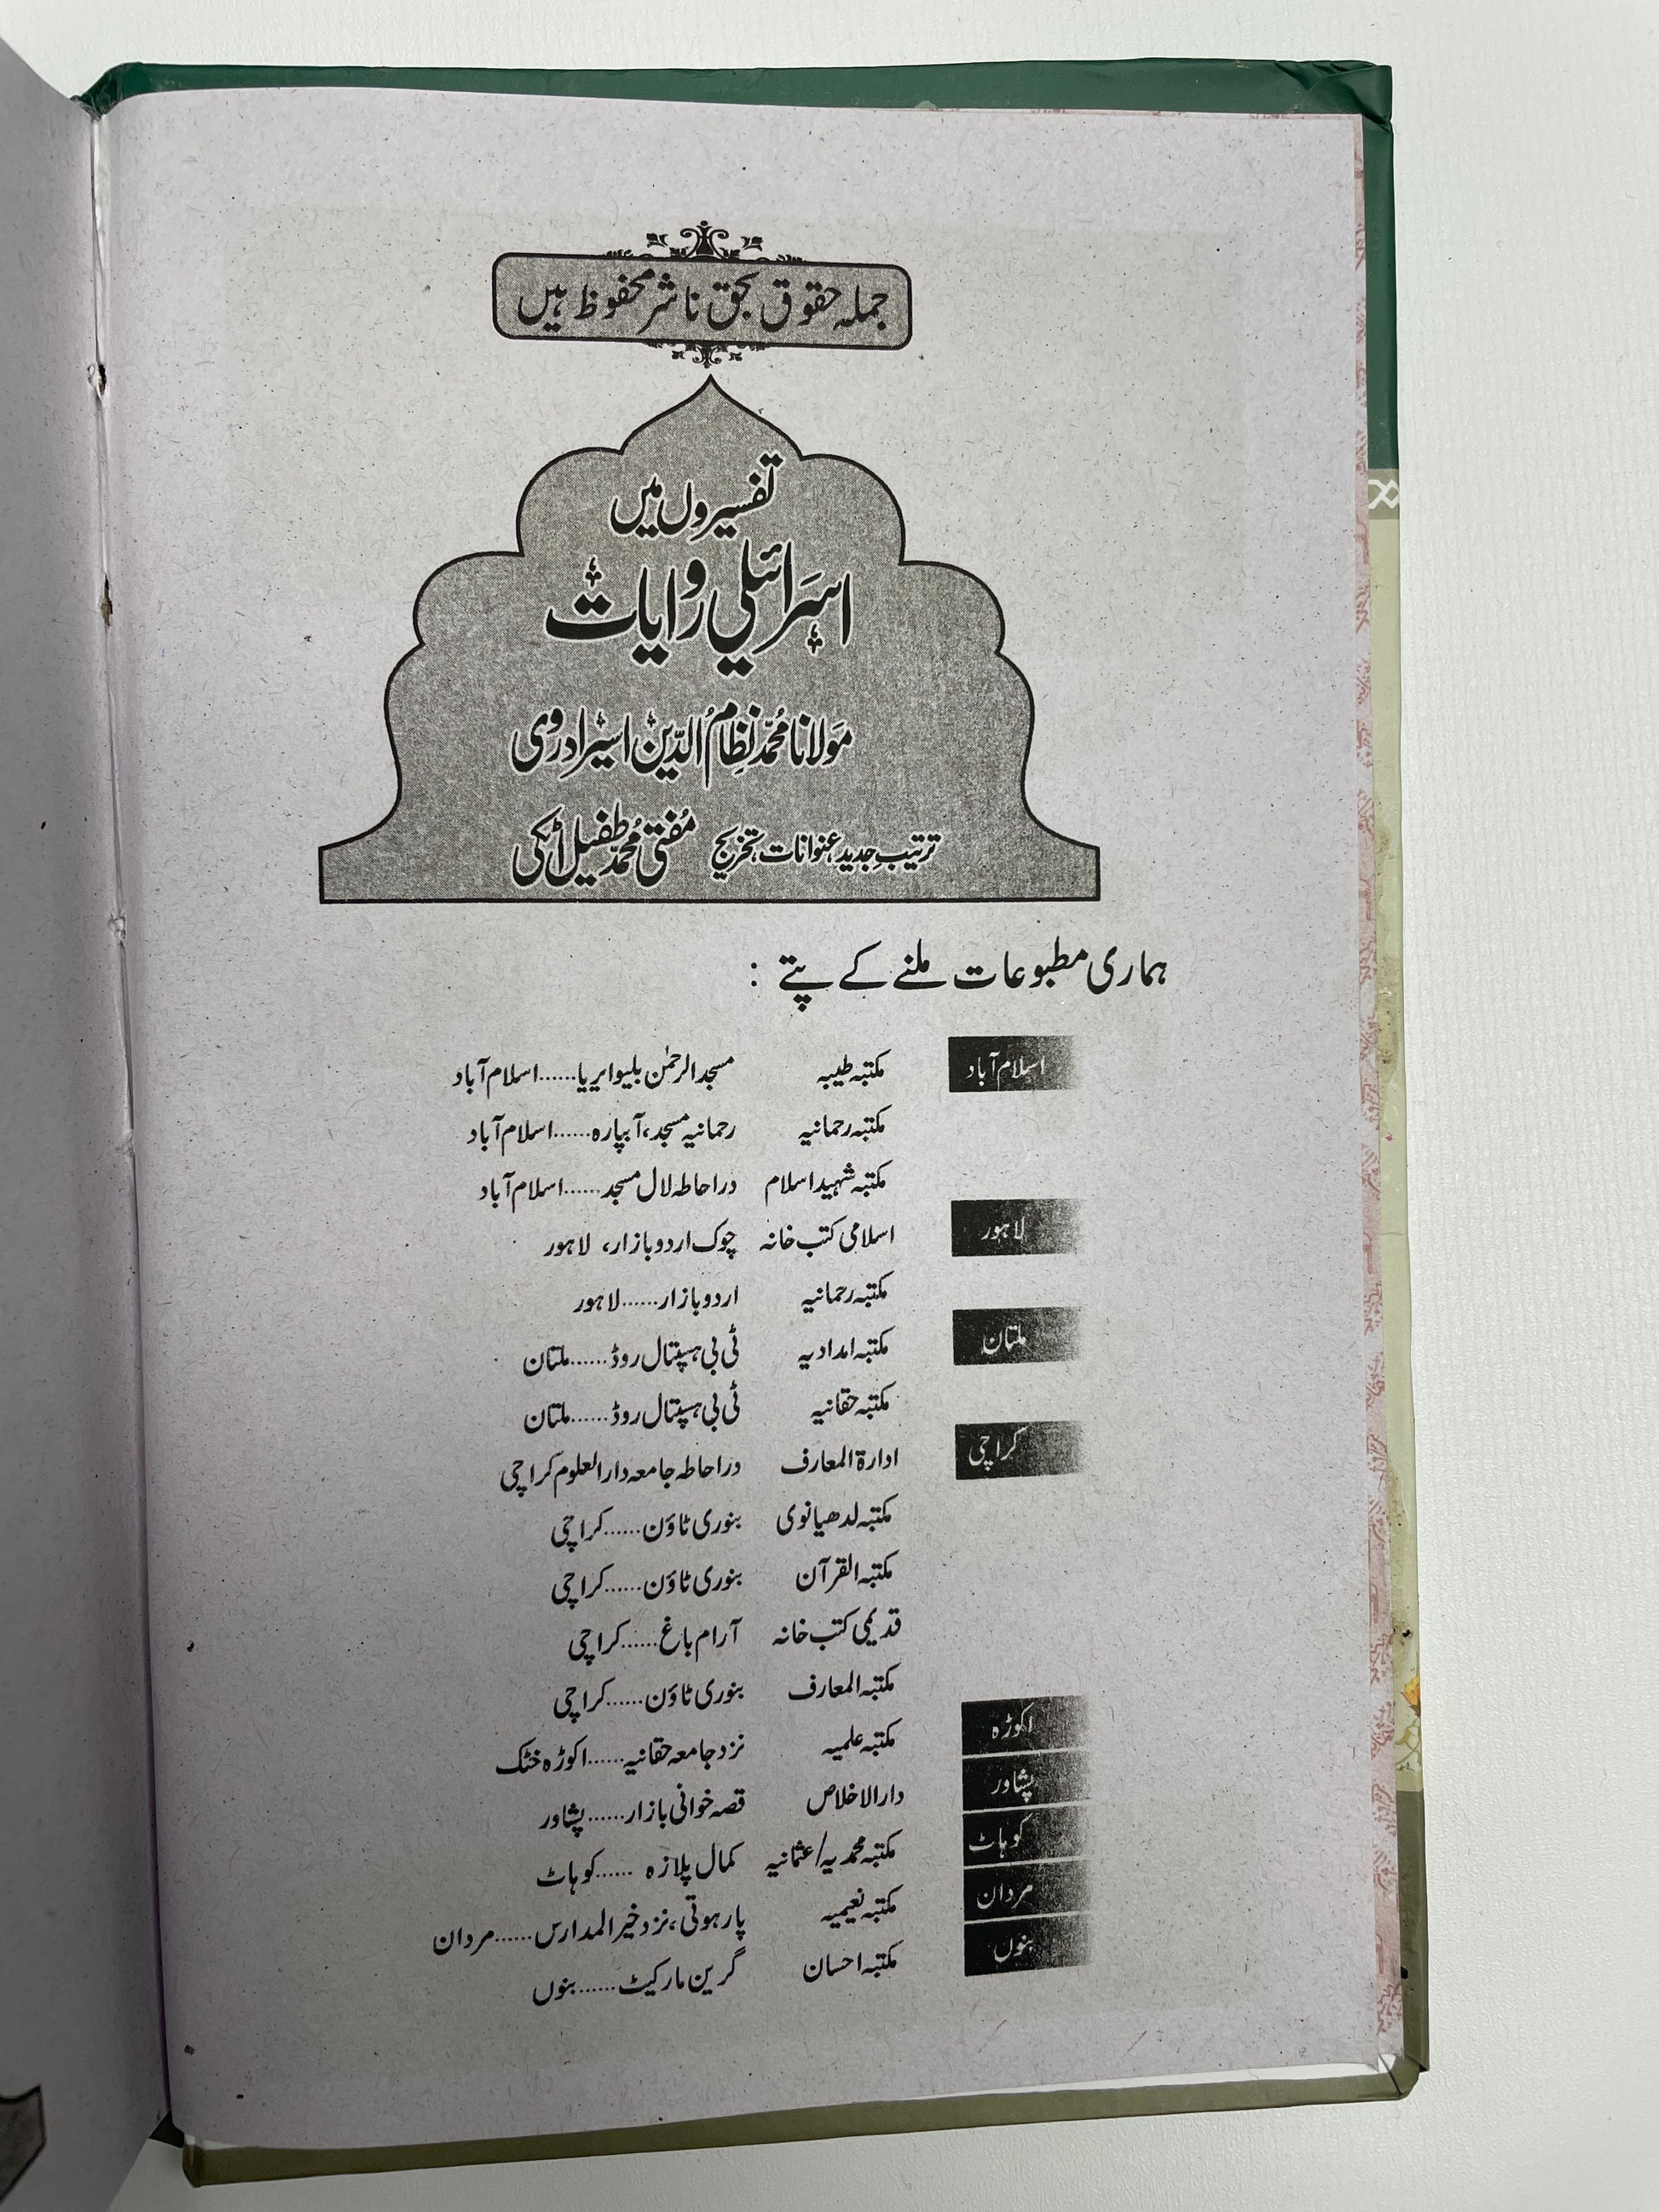 جملہ حقوق بحق ناشر محفوظ ہیں
تفسیروں میں
اسرائیلی روایات
مولانا محمد نظام الدین اسیر ادروی
ترتیب جدید، عنوانات، تخریج مفتی محمد طفیل اٹکی
ہماری مطبوعات ملنے کے پتے :
اسلام آباد مکتبہ طیبہ مسجد الرحمٰن بلیو ایریا......اسلام آباد
مکتبہ رحمانیہ رحمانیہ مسجد، آبپارہ......اسلام آباد
مکتبہ شہید اسلام در احاطہ لال مسجد......اسلام آباد
لاہور اسلامی کتب خانہ چوک اردو بازار، لاہور
مکتبہ رحمانیہ اردو بازار......لاہور
ملتان مکتبہ امدادیہ ٹی بی ہسپتال روڈ......ملتان
مکتبہ حقانیہ ٹی بی ہسپتال روڈ......ملتان
کراچی ادارۃ المعارف در احاطہ جامعہ دار العلوم کراچی
مکتبہ لدھیانوی بنوری ٹاؤن......کراچی
مکتبہ القرآن بنوری ٹاؤن......کراچی
قدیمی کتب خانہ آرام باغ......کراچی
مکتبہ المعارف بنوری ٹاؤن......کراچی
اکوڑہ مکتبہ علمیہ نزد جامعہ حقانیہ......اکوڑہ خٹک
پشاور دار الاخلاص قصہ خوانی بازار......پشاور
کوہاٹ مکتبہ محمدیہ/عثمانیہ کمال پلازہ ......کوہاٹ
مردان مکتبہ نعیمیہ پار ہوتی، نزد خیر المدارس......مردان
بنوں مکتبہ احسان گرین مارکیٹ......بنوں